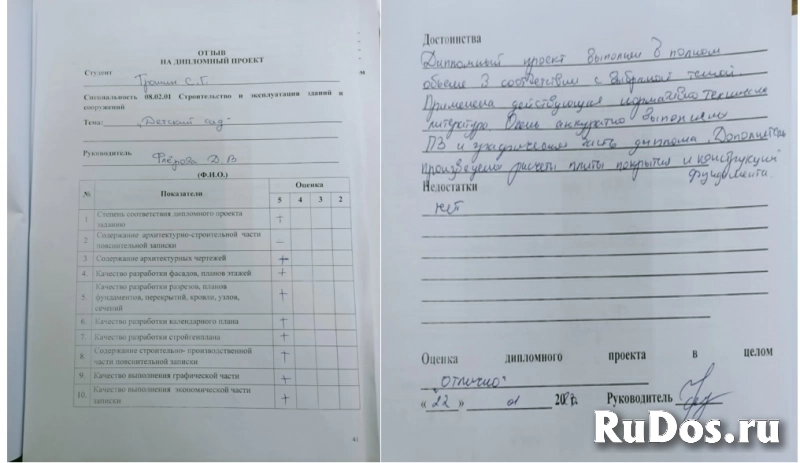 ОТЗЫВ
НА ДИПЛОМНЫЙ ПРОЕКТ
Студент С.Г.
Специальность 08.02.01 Строительство и эксплуатация зданий и
сооружений
Тема: „Детский сад"
Руководитель Флёрова Д.В
(Ф.И.О.)
№ Показатели Оценка
5 4 3 2
1 Степень соответствия дипломного проекта
заданию +
2 Содержание архитектурно-строительной части
пояснительной записки –
3 Содержание архитектурных чертежей +
4. Качество разработки фасадов, планов этажей +
5. Качество разработки разрезов, планов
фундаментов, перекрытий, кровли, узлов,
сечений +
6. Качество разработки календарного плана +
7. Качество разработки стройгенплана +
8. Содержание строительно- производственной
части пояснительной записки +
9. Качество выполнения графической части +
10. Качество выполнения экономической части
записки +
41
м
Достоинства
Дипломный проект выполнен в полном
объеме в соответствии с выбраной темой.
Применена действующая нормативно техническая
литература. Очень аккуратно выполнена
ПЗ и графическая часть диплома. Дополнительно
произведены расчеты плиты покрытия и конструкции
фундамента.
Недостатки
нет
Оценка дипломного проекта в целом
„отлично"
« 22 » 01 Руководитель
RuDos.ru